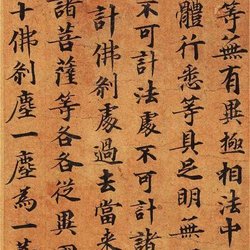 等無有異極相法中
體行悉等具足明無
不可計法處不可計諸
計佛剎處過去當来
諸菩薩等各各從異
十佛剎塵一塵為一